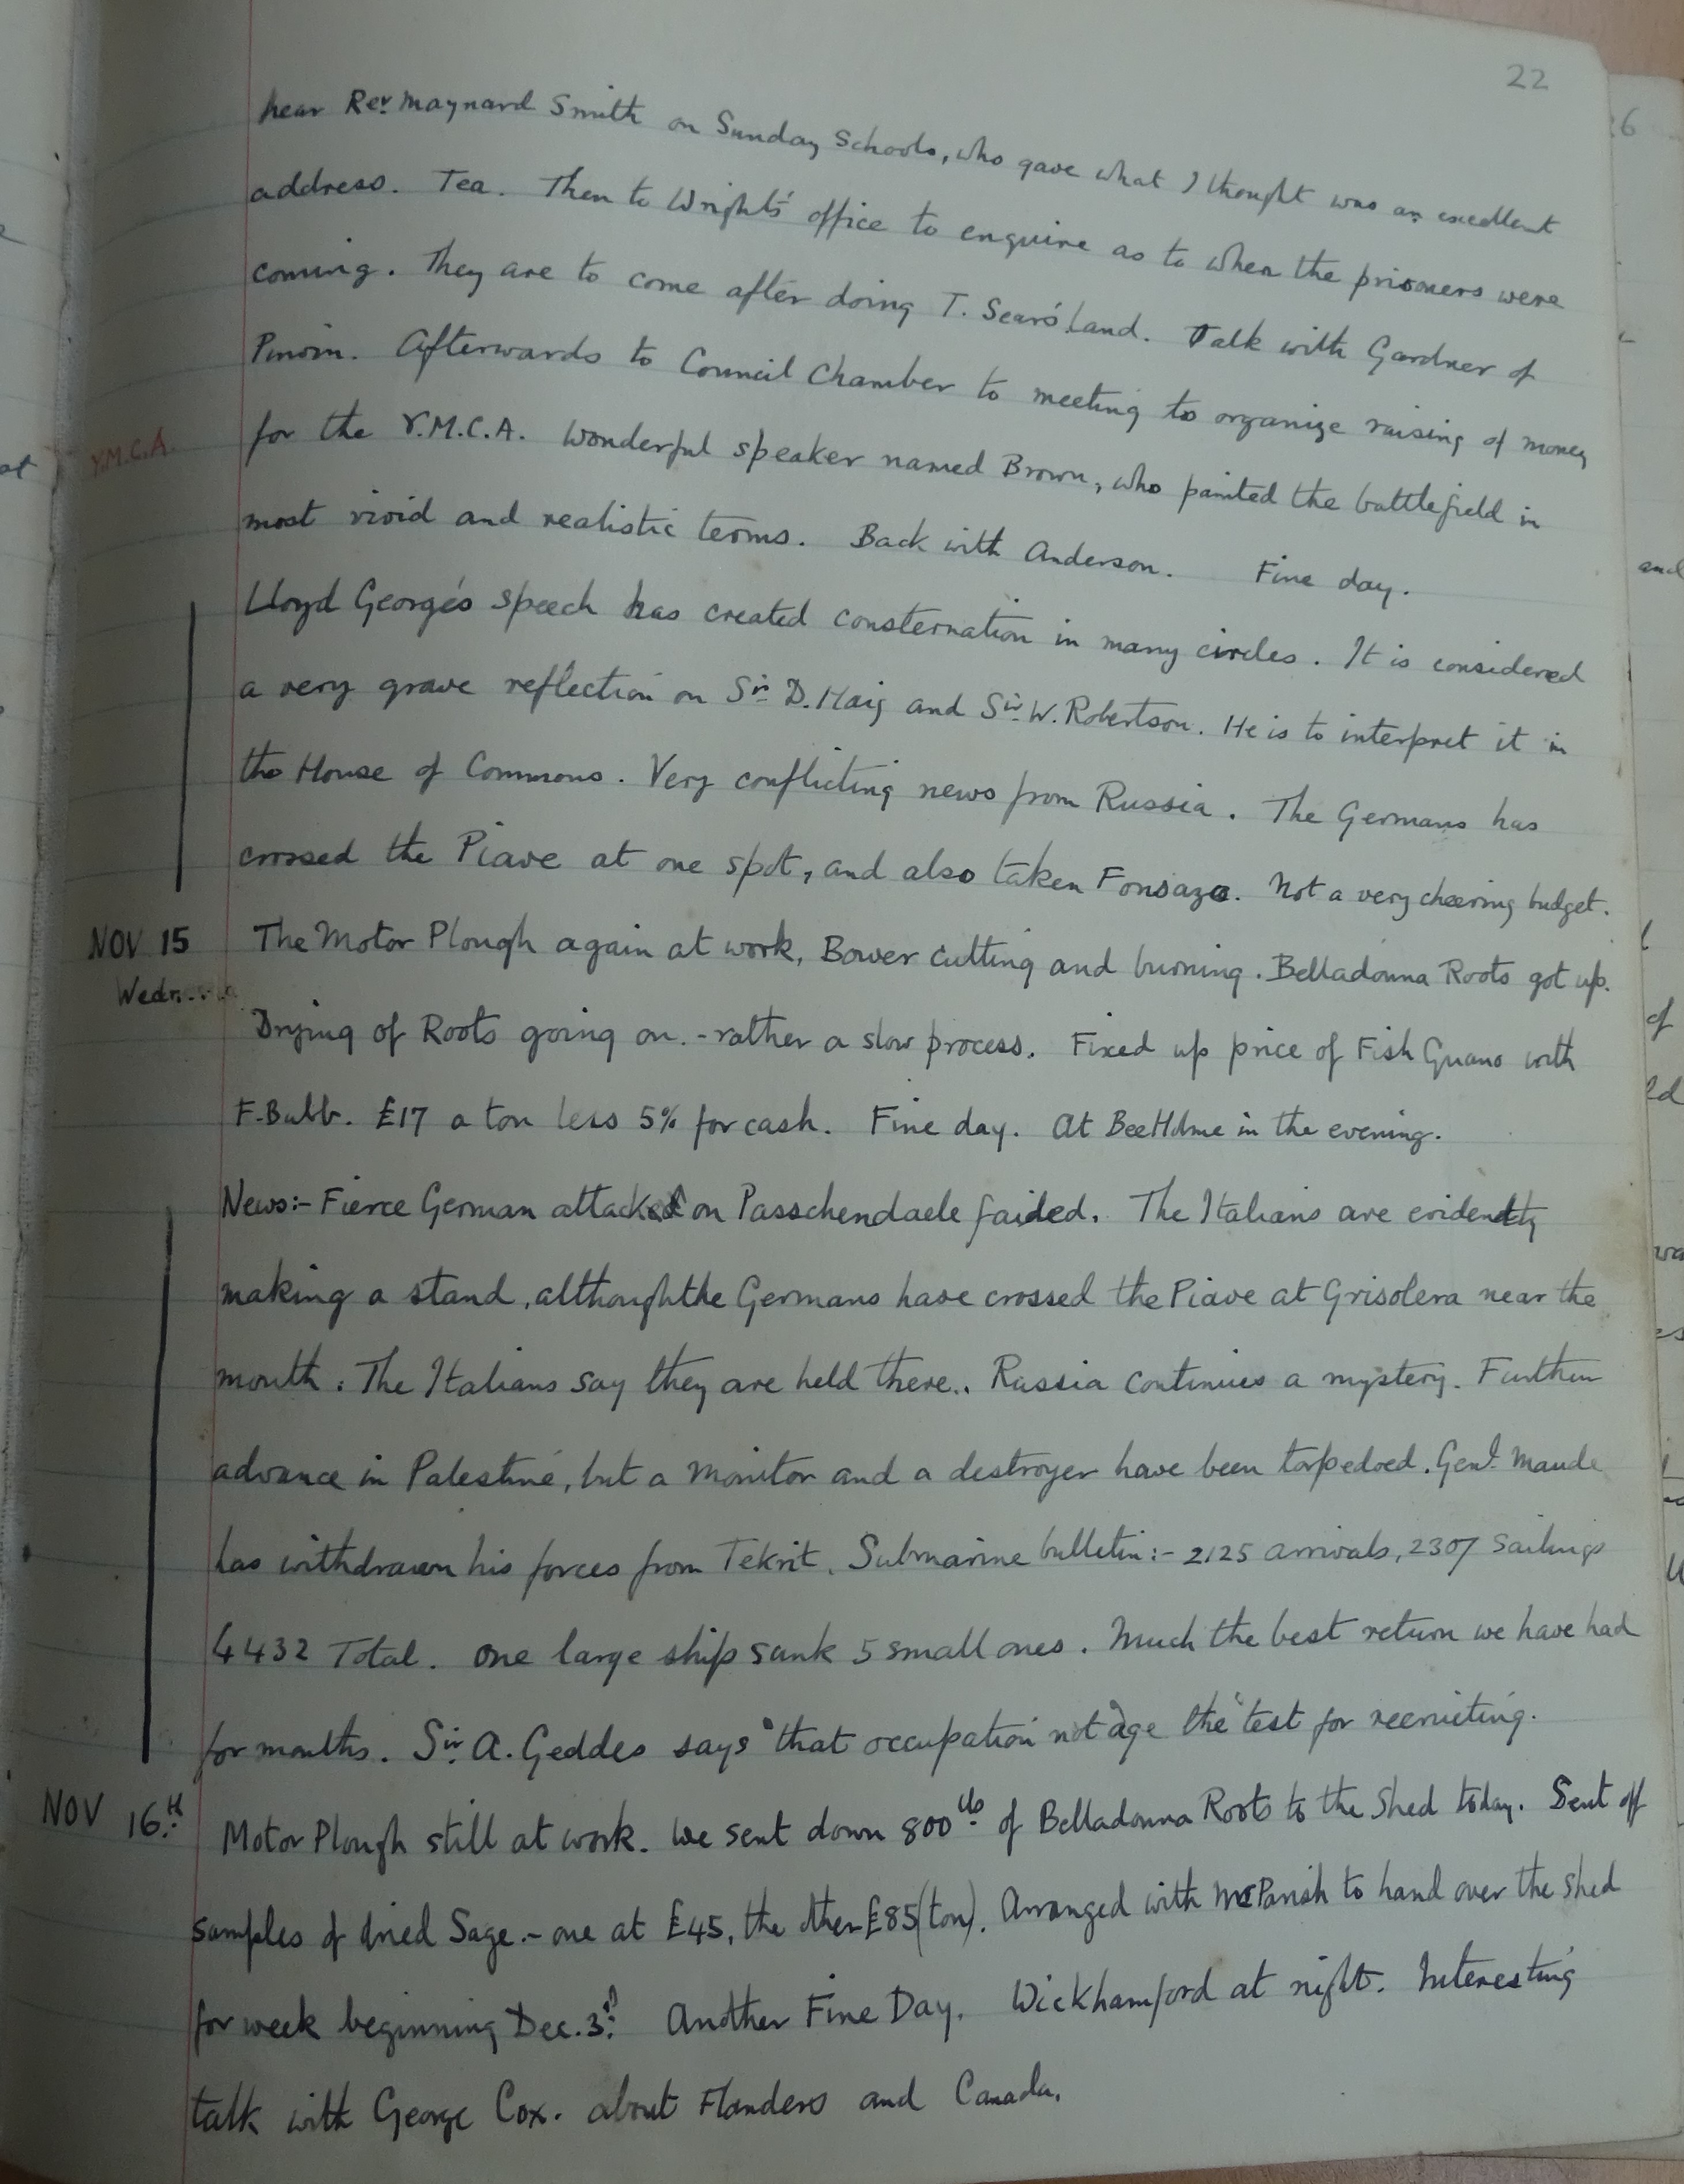 22
hear Rev. Maynard Smith on Sunday Schools, who gave what I thought was an excellent
address. Tea. Then to Wright's office to enquire as to when the prisoners were
coming. They are to come after doing T. Sears' land. Talk with Gardner of
Pinvin. Afterwards to Council Chamber to meeting to organize raising of money
Y.M.C.A.
for the Y.M.C.A. Wonderful speaker named Brown, who painted the battlefield in
most vivid and realistic terms. Back with Anderson. Fine day.
Lloyd George's speech has created consternation in many circles. It is considered
a very grave reflection on Sir D. Haig and Sir W. Robertson. He is to interpret it in
the House of Commons. Very conflicting news from Russia. The Germans has
crossed the Piave at one spot, and also taken Fonsaza. Not a very cheering budget.
NOV 15
The Motor Plough again at work, Bower cutting and burning. Belladonna Roots got up.
Drying of Roots going on. - rather a slow process. Fixed up price of Fish Guano with
F. Bubb. £17 a ton less 5% for cash. Fine day. At Bee Holme in the evening.
News:- Fierce German attack on Passchendaele failed. The Italians are evidently
making a stand, although the Germans have crossed the Piave at Grisolera near the
mouth. The Italians say they are held there.. Russia continues a mystery. Further
advance in Palestine, but a monitor and a destroyer have been torpedoed. Genl. Maude
has withdrawn his forces from Tekrit. Submarine bulletin:- 2125 arrivals, 2307 Sailings
4432 Total. One large ship sunk 5 small ones. Much the best return we have had
for months. Sir A. Geddes says "that occupation not age the" test for recruiting.
NOV 16.TH
Motor Plough still at work. We sent down 800 lbs of Belladonna Roots to the Shed today. Sent off
samples of dried Sage. - one at £45, the other £85 (ton). Arranged with Mr Parish to hand over the shed
for week beginning Dec. 3rd Another Fine Day. Wickhamford at night. Interesting
talk with George Cox. about Flanders and Canada.